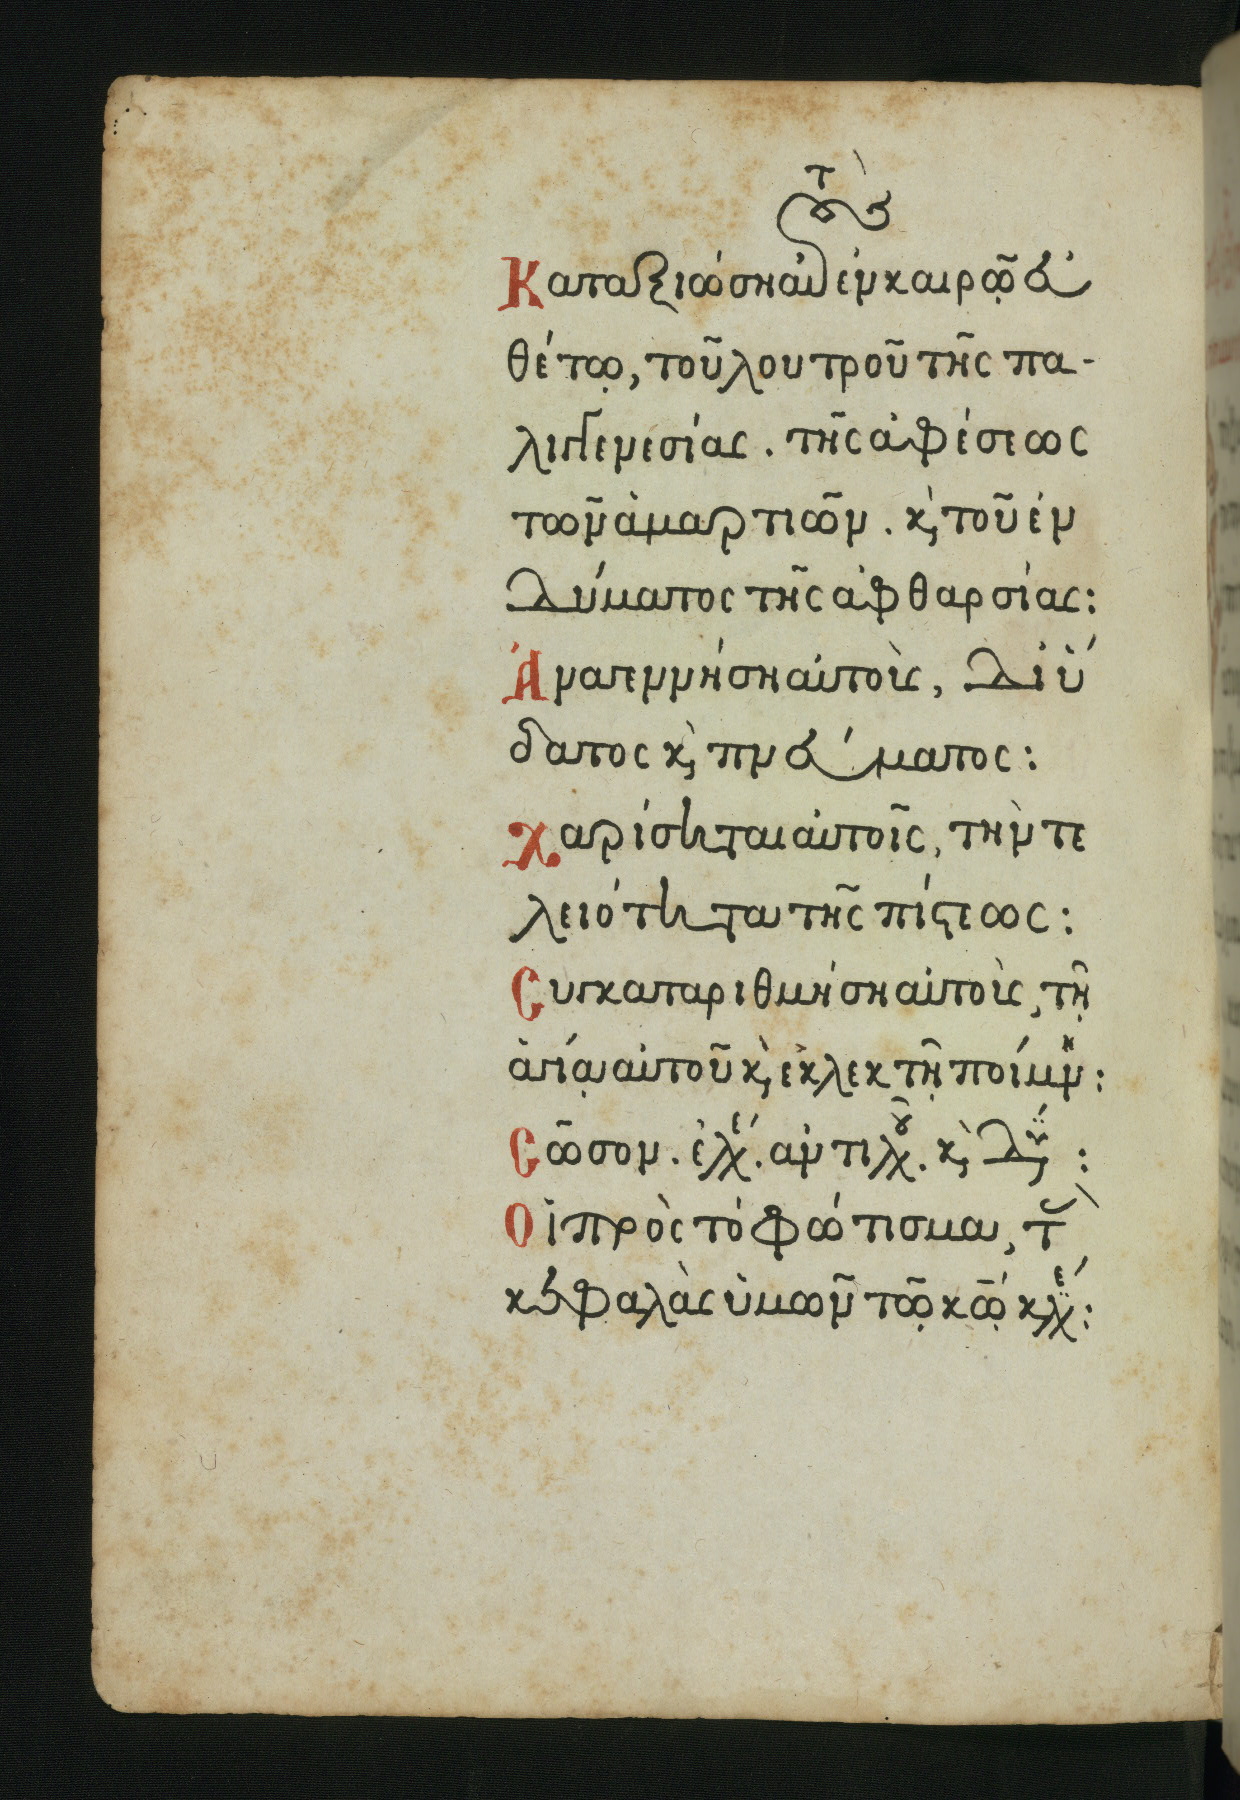 Καταξιώση αὐτοὺς ἐν καιρῷ εὐ
θέτῳ, τοῦ λουτροῦ τῆς πα-
λιγγενεσίας. τῆς ἀφέσεως
τῶν ἁμαρτιῶν. κ̀ τοῦ ἐν
δύματος τῆς ἀφθαρσίας:
Ἀναγεννήση αὐτοὺς, δι ὕ
δατος κ̀ πνεύματος:
Χαρίσηται αὐτοῖς, τὴν τε
λειότητα τῆς πίστεως:
Συγκαταριθμήση αὐτοὺς, τῆ
ἁγίᾳ αὐτοῦ κ̀ ἐκλεκτῇ ποίμν:
Σῶσον. ἐλέ. ἀντιλ. κ̀ δ:
Οἱ πρὸς τὸ φώτισμα, τ
κεφαλὰς ὑμῶν τῷ κῷ κλ: